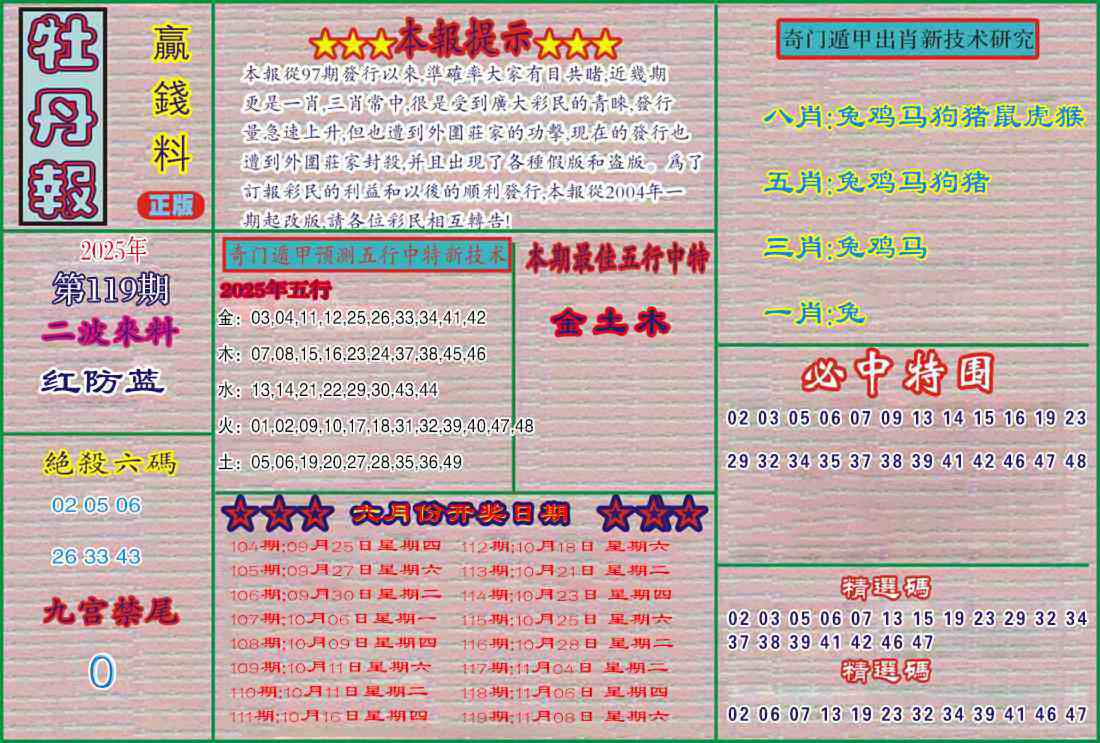 牡丹報
贏錢料
正版
2025年
第119期
二波來料
红防蓝
絕殺六碼
02 05 06
26 33 43
九宫禁尾
0
★★★本報提示★★★
本報從97期發行以來,準確率大家有目共睹,近幾期
更是一肖,三肖常中,很是受到廣大彩民的青睞,發行
量急速上升,但也遭到外圍莊家的功擊,現在的發行也
遭到外圍莊家封殺,并且出現了各種假版和盗版。爲了
訂報彩民的利益和以後的順利發行,本報從2004年一
期起改版,請各位彩民相互轉告!
奇门遁甲预测五行中特新技术
2025年五行
金：03,04,11,12,25,26,33,34,41,42
木：07,08,15,16,23,24,37,38,45,46
水：13,14,21,22,29,30,43,44
火：01,02,09,10,17,18,31,32,39,40,47,48
土：05,06,19,20,27,28,35,36,49
本期最佳五行中特
金土木
★★★ 六月份开奖日期 ★★★
104期;09月25日星期四 112期;10月18日 星期六
105期;09月27日星期六 113期;10月21日 星期二
106期;09月30日星期二 114期;10月23日 星期四
107期;10月06日星期一 115期;10月25日 星期六
108期;10月09日星期四 116期;10月28日 星期二
109期;10月11日星期六 117期;11月04日 星期二
110期;10月11日星期二 118期;11月06日 星期四
111期;10月16日星期四 119期;11月08日 星期六
奇门遁甲出肖新技术研究
八肖:兔鸡马狗猪鼠虎猴
五肖:兔鸡马狗猪
三肖:兔鸡马
一肖:兔
必中特围
02 03 05 06 07 09 13 14 15 16 19 23
29 32 34 35 37 38 39 41 42 46 47 48
精選碼
02 03 05 06 07 13 15 19 23 29 32 34
37 38 39 41 42 46 47
精選碼
02 06 07 13 19 23 32 34 39 41 46 47